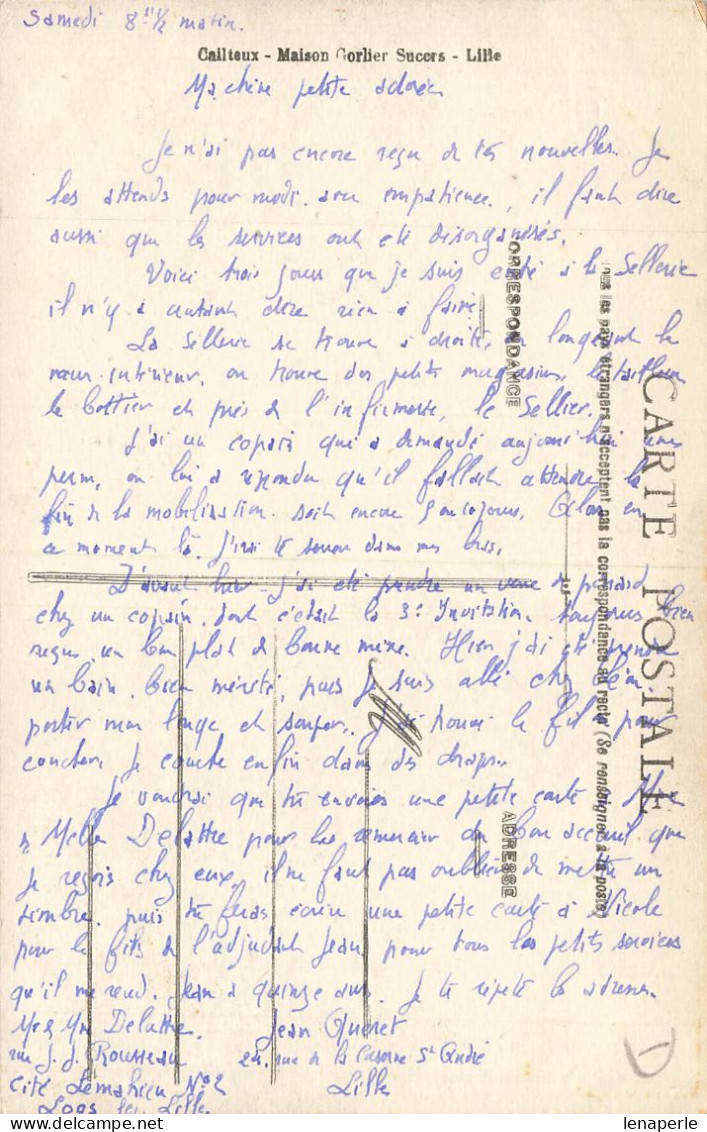 Samedi 8 H 1/2 matin.
Cailteux - Maison Gorlier Succrs - Lille
Ma chère petite adorée
Je n'ai pas encore reçu de tes nouvelles. Je
les attends pour midi avec empatience, il faut dire
aussi que les services ont été désorganisés.
Voici trois jours que je suis entré à la Sellerie
il n'y a autant dire rien à faire.
La Sellerie se trouve à droite, en longeant le
mur intérieur, on trouve des petits magasins, le tailleur
le bottier et près de l'infirmerie, le Sellier.
J'ai un copain qui a demandé aujourd'hui une
perm, on lui a répondu qu'il fallait attendre la
fin de la mobilisation. soit encore 5 ou 10 jours, Alors en
ce moment là. J'irai te serrer dans mes bras.
D'avant hier j'ai été prendre un verre de pinard
chez un copain, dont c'était la 3e Invitation. toujours bien
reçus, un bon plat de bonne mine. Hier j'ai été prendre
un bain, bien mérité, puis je suis allé chez Léon
porter mon linge et souper. J'ai trouvé le fil pour
coucher. Je couche enfin dans des draps..
Je voudrai que tu envoies une petite carte à Mr
& Melle Delattre pour les remercier du bon accueil que
je reçois chez eux, il ne faut pas oublier de mettre un
timbre. puis tu feras écrire une petite carte à Nicole
pour le fils de l'adjudant Jean pour tous les petits services
qu'il me rend. Jean a quinze ans. Je te répète les adresses.
Mr & Mme Delattre. Jean Queret
rue J.J. Rousseau 24, rue de la Caserne St André
Cité Lemahieu No 2 Lille
Loos les Lille
CARTE POSTALE
Tous les pays étrangers n'acceptent pas la correspondance au recto (Se renseigner à la poste)
CORRESPONDANCE
ADRESSE
D
lenaperle